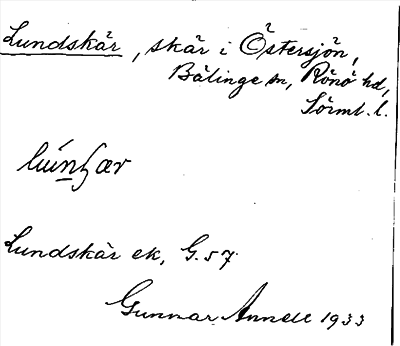 Lundskär, skär i Östersjön,
Bälinge sn, Rönö hd,
Sörml. l.
Lundskär ek, G.57
Gunnar Annell 1933